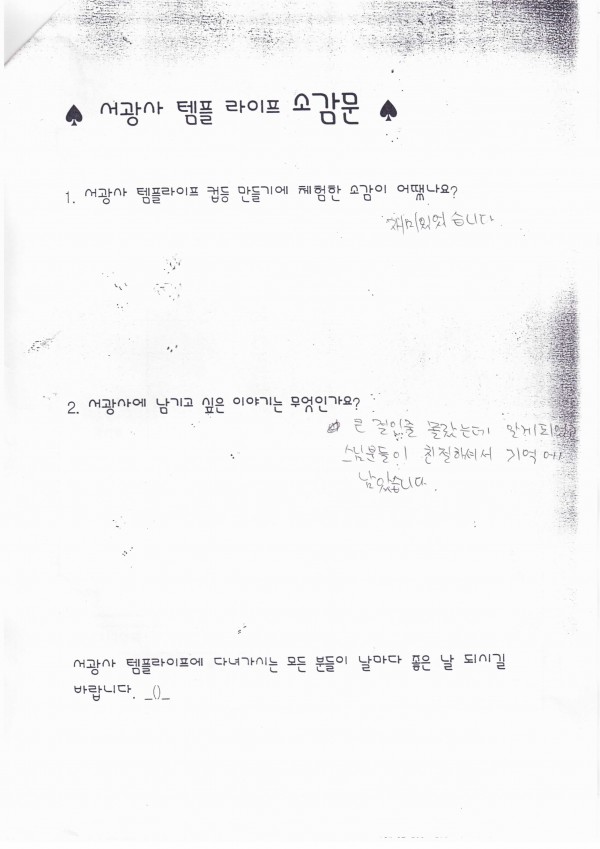 ♠ 서광사 템플 라이프 소감문 ♠
1. 서광사 템플라이프 컵등 만들기에 체험한 소감이 어땠나요?
재미있었습니다
2. 서광사에 남기고 싶은 이야기는 무엇인가요?
큰 절인줄 몰랐는데 알게되었고
스님분들이 친절하셔서 기억에
남았습니다.
서광사 템플라이프에 다녀가시는 모든 분들이 날마다 좋은 날 되시길
바랍니다. _()_